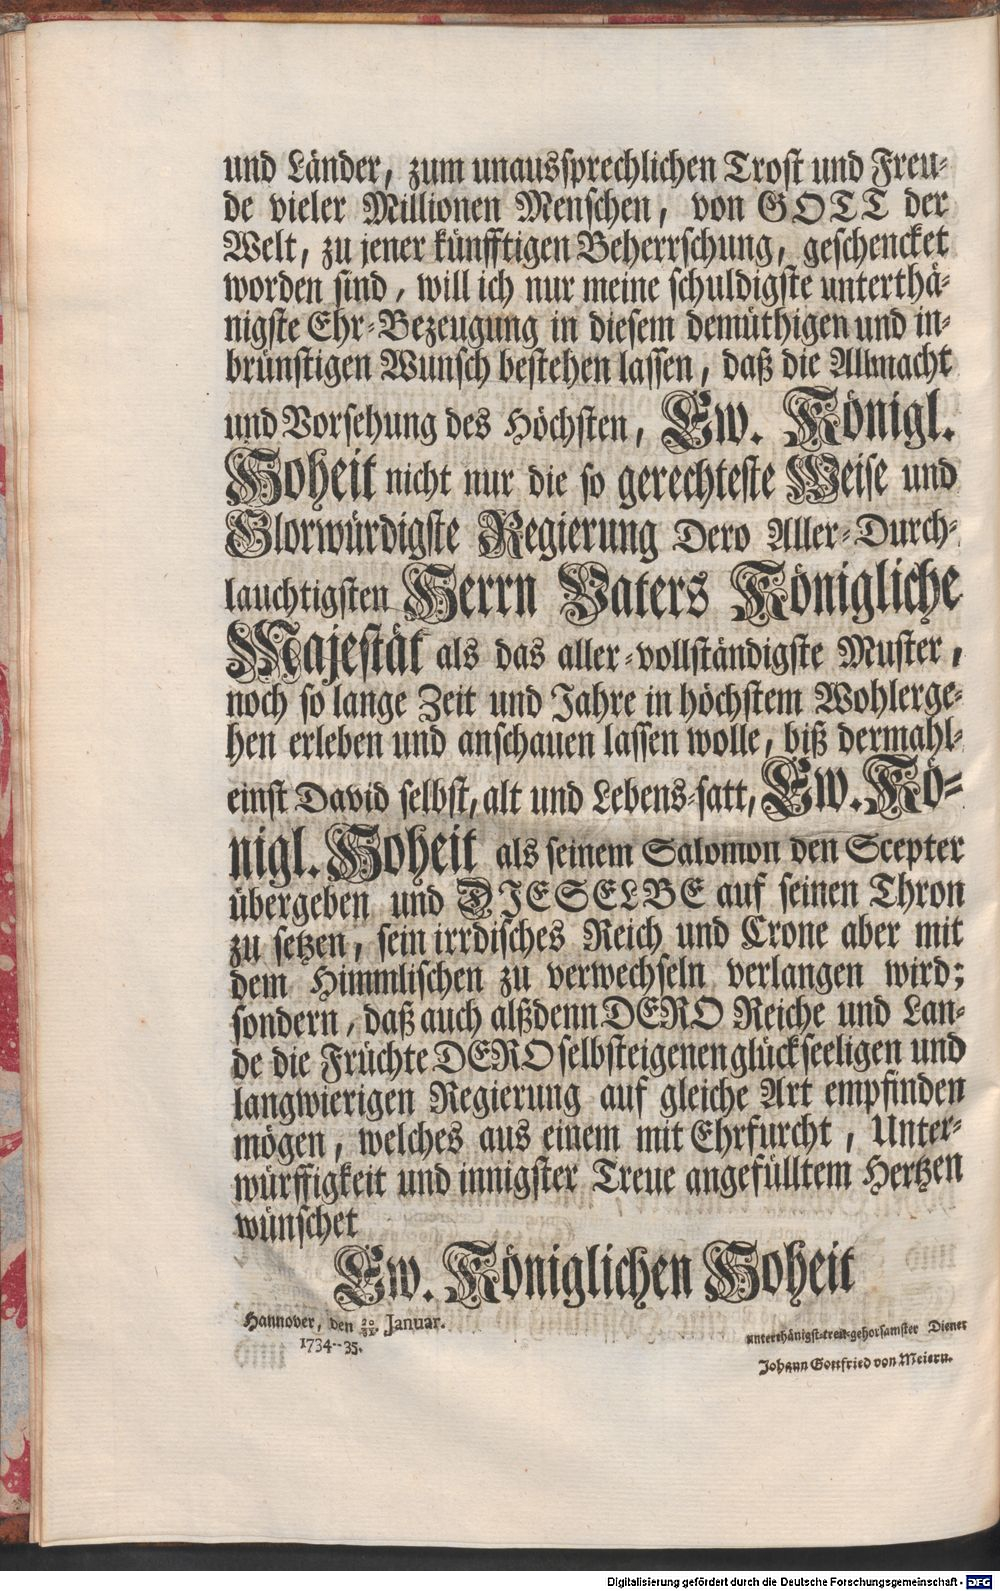 und Länder, zum unaussprechlichen Trost und Freu-
de vieler Millionen Menschen, von GOTT der
Welt, zu jener künfftigen Beherrschung, geschencket
worden sind, will ich nur meine schuldigste unterthä-
nigste Ehr-Bezeugung in diesem demüthigen und in-
brünstigen Wunsch bestehen lassen, daß die Allmacht
und Vorsehung des Höchsten, Ew. Königl.
Hoheit nicht nur die so gerechteste Weise und
Glorwürdigste Regierung Dero Aller-Durch-
lauchtigsten Herrn Vaters Königliche
Majestät als das aller-vollständigste Muster,
noch so lange Zeit und Jahre in höchstem Wohlerge-
hen erleben und anschauen lassen wolle, biß dermahl-
einst David selbst, alt und Lebens-satt, Ew. Kö-
nigl. Hoheit als seinem Salomon den Scepter
übergeben und DIESELBE auf seinen Thron
zu setzen, sein irrdisches Reich und Crone aber mit
dem Himmlischen zu verwechseln verlangen wird;
sondern, daß auch alßdenn DERO Reiche und Lan-
de die Früchte DERO selbsteigenen glückseeligen und
langwierigen Regierung auf gleiche Art empfinden
mögen, welches aus einem mit Ehrfurcht, Unter-
würffigkeit und innigster Treue angefülltem Hertzen
wünschet
Ew. Königlichen Hoheit
Hannover, den 20/31 Januar.
1734--35.
unterthänigst-treu-gehorsamster Diener
Johann Gottfried von Meiern.
Digitalisierung gefördert durch die Deutsche Forschungsgemeinschaft - DFG